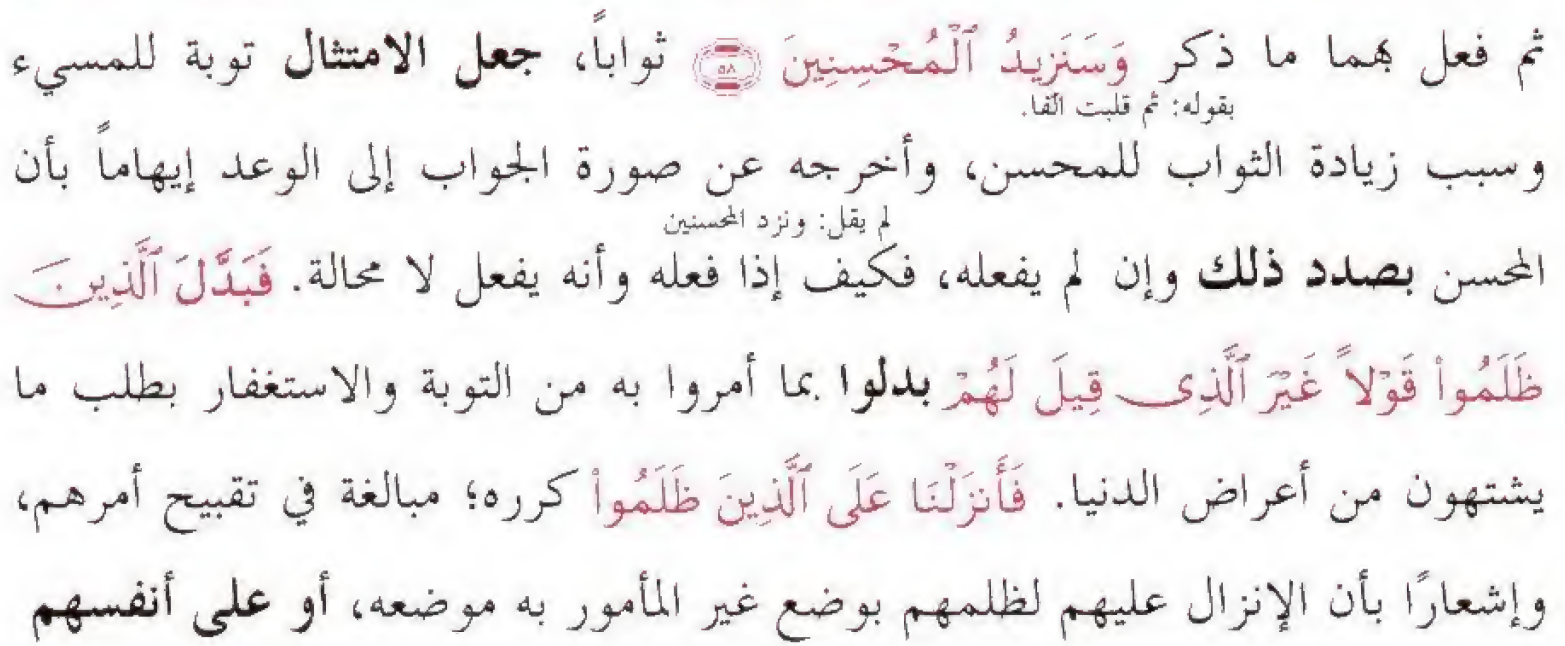 ثم فعل بهما ما ذكر وَسَنَزِيدُ ٱلْمُحْسِنِينَ ٥٨ ثواباً، جعل الامتثال توبة للمسيء
بقوله: ثم قلبت ألفا.
وسبب زيادة الثواب للمحسن، وأخرجه عن صورة الجواب إلى الوعد إيهاماً بأن
لم يقل: ونزد المحسنين
المحسن بصدد ذلك وإن لم يفعله، فكيف إذا فعله وأنه يفعل لا محالة. فَبَدَّلَ ٱلَّذِينَ
ظَلَمُواْ قَوْلاً غَيْرَ ٱلَّذِى قِيلَ لَهُمْ بدلوا بما أمروا به من التوبة والاستغفار بطلب ما
يشتهون من أعراض الدنيا. فَأَنزَلْنَا عَلَى ٱلَّذِينَ ظَلَمُواْ كرره؛ مبالغة في تقبيح أمرهم،
وإشعارًا بأن الإنزال عليهم لظلمهم بوضع غير المأمور به موضعه، أو على أنفسهم